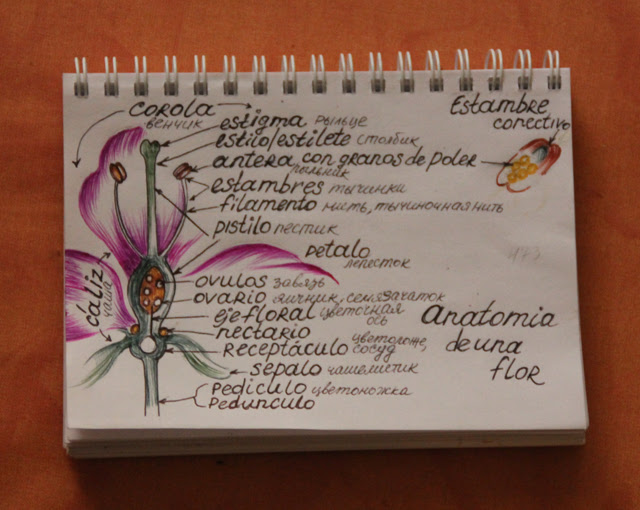 corola
венчик
estigma рыльце
estilo/estilete столбик
antera con granos de poler
пыльник
estambres тычинки
filamento нить, тычиночная нить
pistilo пестик
petalo
лепесток
cáliz
чаша
ovulos завязь
ovario яичник, семязачаток
eje floral цветочная
ось
nectario
Receptáculo цветоложе,
сосуд
sepalo чашелистик
Pediculo цветоножка
Pedunculo
Estambre
conectivo
473
Anatomia
de una
flor